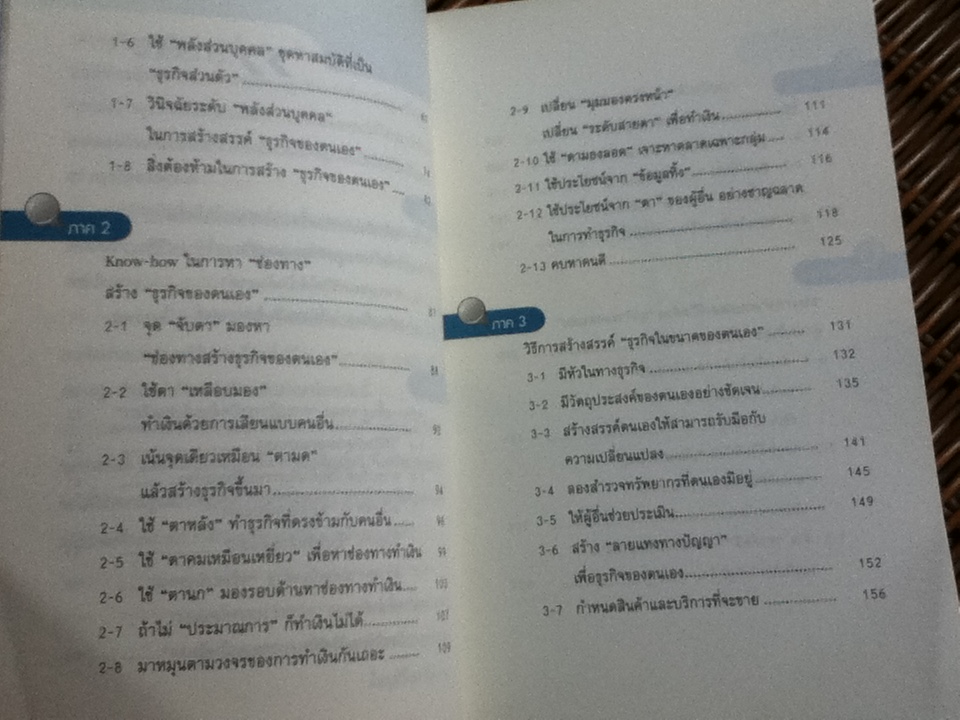 1-6 ใช้ "พลังส่วนบุคคล" ขุดหาสมบัติที่เป็น
"ธุรกิจส่วนตัว"
1-7 วินิจฉัยระดับ "พลังส่วนบุคคล"
ในการสร้างสรรค์ "ธุรกิจของตนเอง"
1-8 สิ่งต้องห้ามในการสร้าง "ธุรกิจของตนเอง"
ภาค 2
Know-how ในการหา "ช่องทาง"
สร้าง "ธุรกิจของตนเอง" 81
2-1 จุด "จับตา" มองหา
"ช่องทางสร้างธุรกิจของตนเอง"
2-2 ใช้ตา "เหลือบมอง"
ทำเงินด้วยการเลียนแบบคนอื่น
2-3 เน้นจุดเดียวเหมือน "ตามด"
แล้วสร้างธุรกิจขึ้นมา 94
2-4 ใช้ "ตาหลัง" ทำธุรกิจที่ตรงข้ามกับคนอื่น
2-5 ใช้ "ตาคมเหมือนเหยี่ยว" เพื่อหาช่องทางทำเงิน
2-6 ใช้ "ตานก" มองรอบด้านหาช่องทางทำเงิน
2-7 ถ้าไม่ "ประมาณการ" ก็ทำเงินไม่ได้ 107
2-8 มาหมุนตามวงจรของการทำเงินกันเถอะ 109
2-9 เปลี่ยน "มุมมองตรงหน้า"
เปลี่ยน "ระดับสายตา" เพื่อทำเงิน 111
2-10 ใช้ "ตามองลอด" เจาะหาตลาดเฉพาะกลุ่ม 114
2-11 ใช้ประโยชน์จาก "ข้อมูลทิ้ง" 116
2-12 ใช้ประโยชน์จาก "ตา" ของผู้อื่น อย่างชาญฉลาด
ในการทำธุรกิจ 118
2-13 คบหาคนดี 125
ภาค 3
วิธีการสร้างสรรค์ "ธุรกิจในขนาดของตนเอง" 131
3-1 มีหัวในทางธุรกิจ 132
3-2 มีวัตถุประสงค์ของตนเองอย่างชัดเจน 135
3-3 สร้างสรรค์ตนเองให้สามารถรับมือกับ
ความเปลี่ยนแปลง 141
3-4 ลองสำรวจทรัพยากรที่ตนเองมีอยู่ 145
3-5 ให้ผู้อื่นช่วยประเมิน 149
3-6 สร้าง "ลายแทงทางปัญญา"
เพื่อธุรกิจของตนเอง 152
3-7 กำหนดสินค้าและบริการที่จะขาย 156